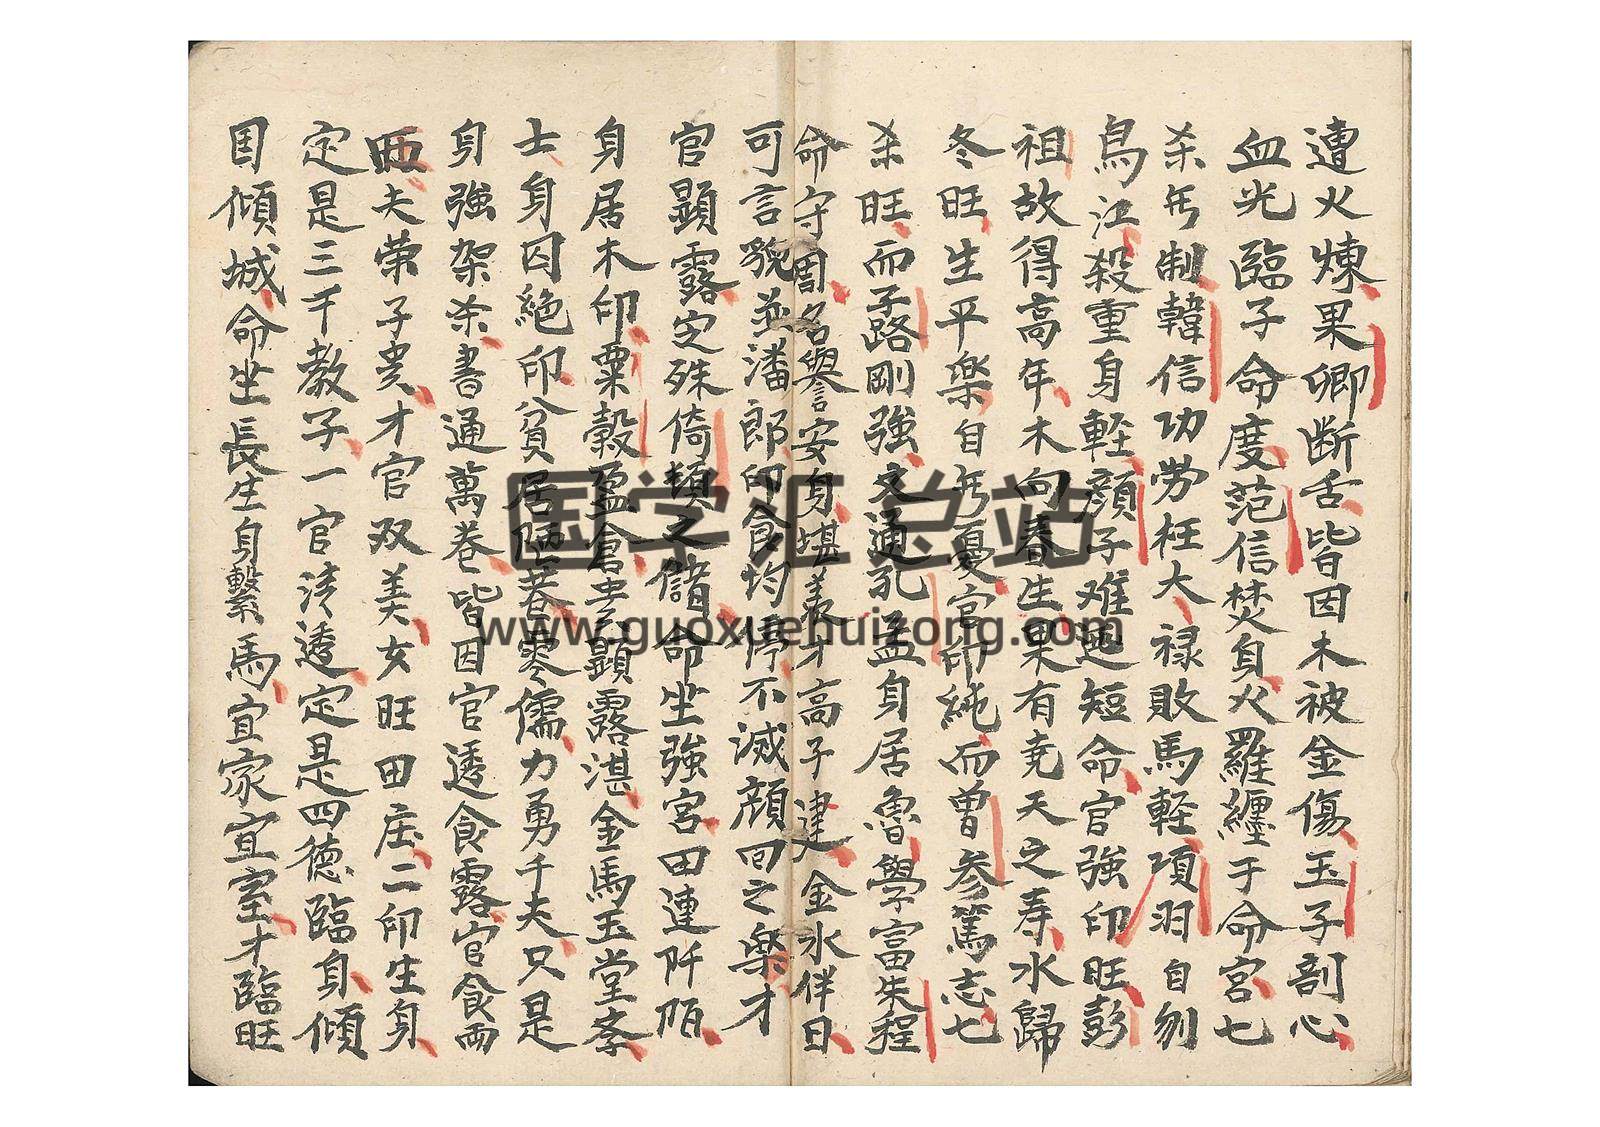 遭火煉果卿断舌皆因木被金傷玉子剖心
血光臨子命度范信焚身火羅纏于命宮七
杀旡制韓信功劳枉大禄敗馬軽項羽自刎
烏江殺重身軽顔子难迯短命官強印旺彭
祖故得高年木向春生果有尭天之寿水歸
冬旺生平樂自旡憂官印純而曽参篤志七
杀旺而子路剛強文通孔孟身居魯學富朱程
命守周名譽安身堪羨才高子建金水伴日
可言貌並潘郎印食均停不滅顔回之樂才
官顕露定殊倚頼之儲命坐強宮田連阡陌
身居木印粟穀盈倉貴顕露湛金馬玉堂李
士身囚絶印貧居陋巷寒儒力勇千夫只是
身強架杀書通萬卷皆因官透食露官食両
旺夫荣子贵才官双美女旺田庄二印生身
定是三千教子一官清透定是四德臨身傾
国傾城命坐長生身繋馬宜家宜室才臨旺
国学汇总站
www.guoxuehuizong.com